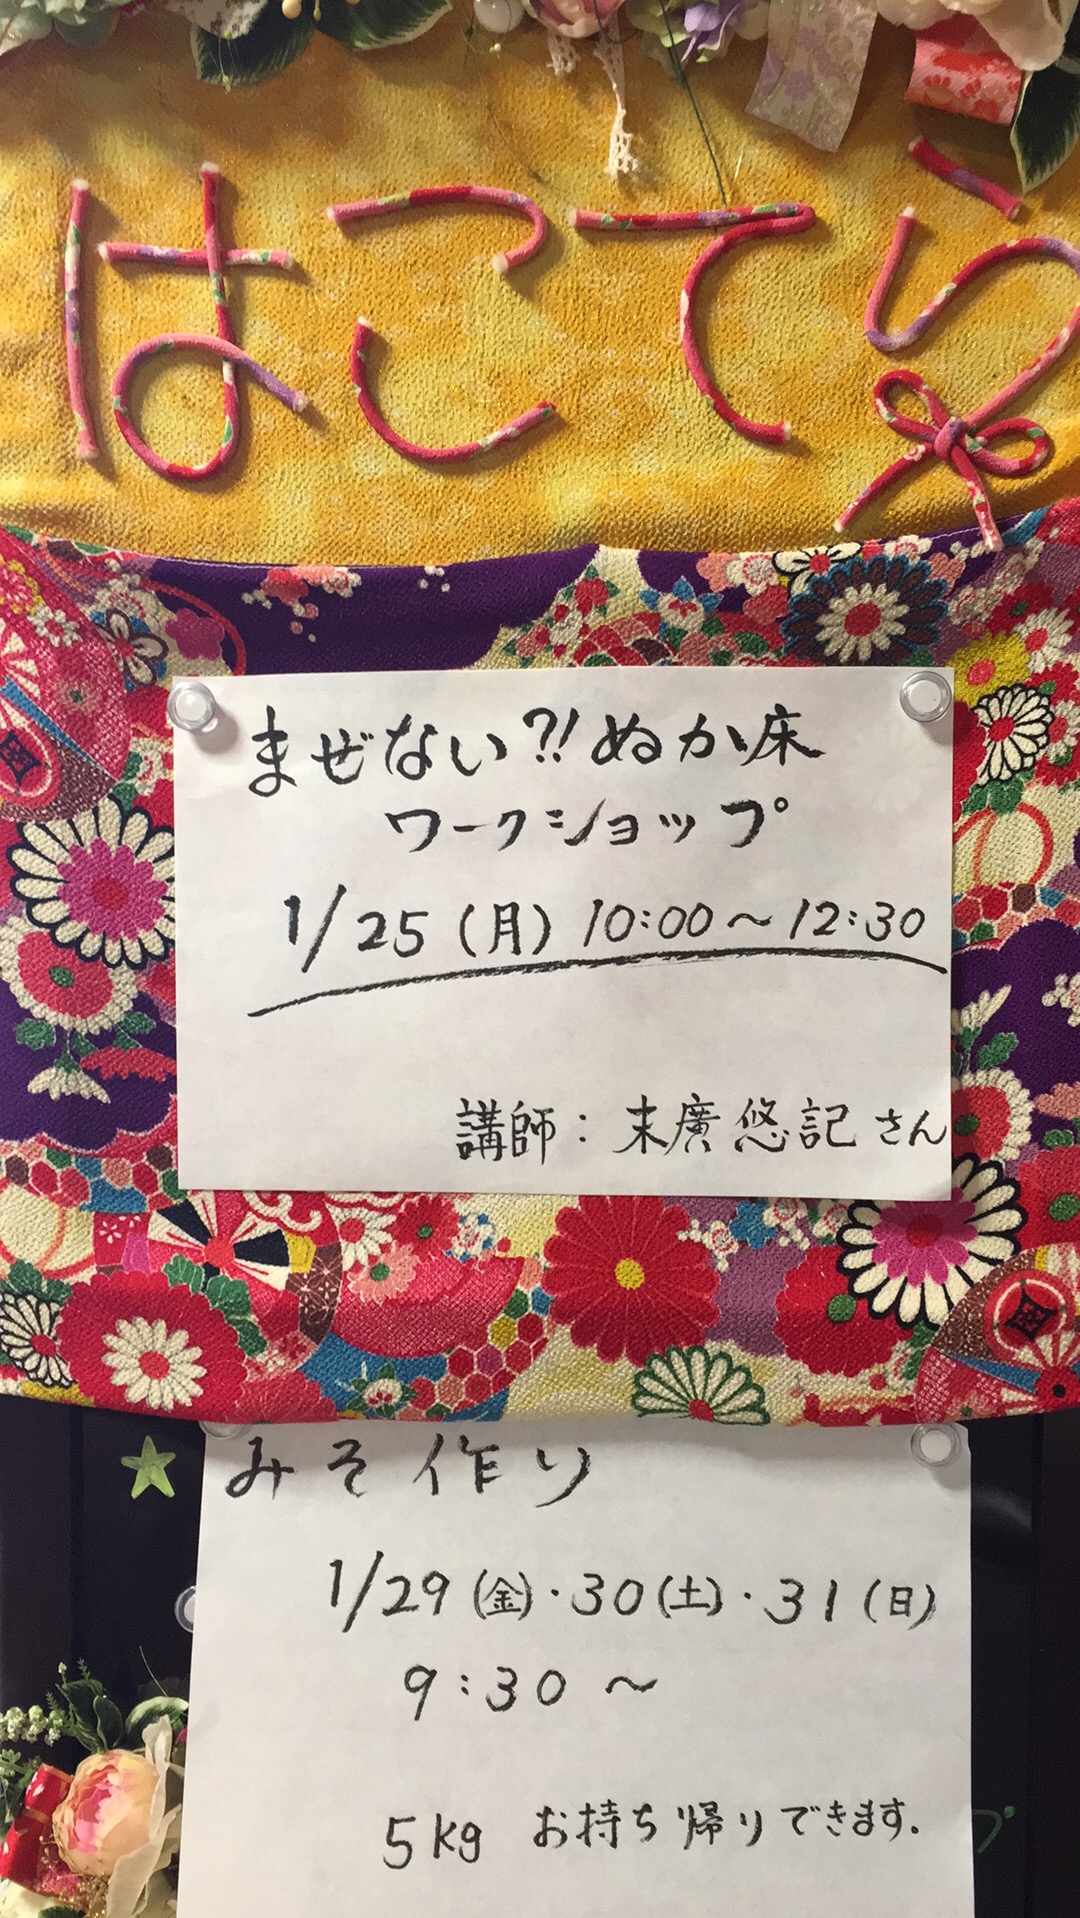 はこてら
まぜない⁈ぬか床
ワークショップ
1/25(月) 10:00～12:30
講師：末廣悠記さん
みそ作り
1/29(金)・30(土)・31(日)
9:30～
5kg お持ち帰りできます.
プ